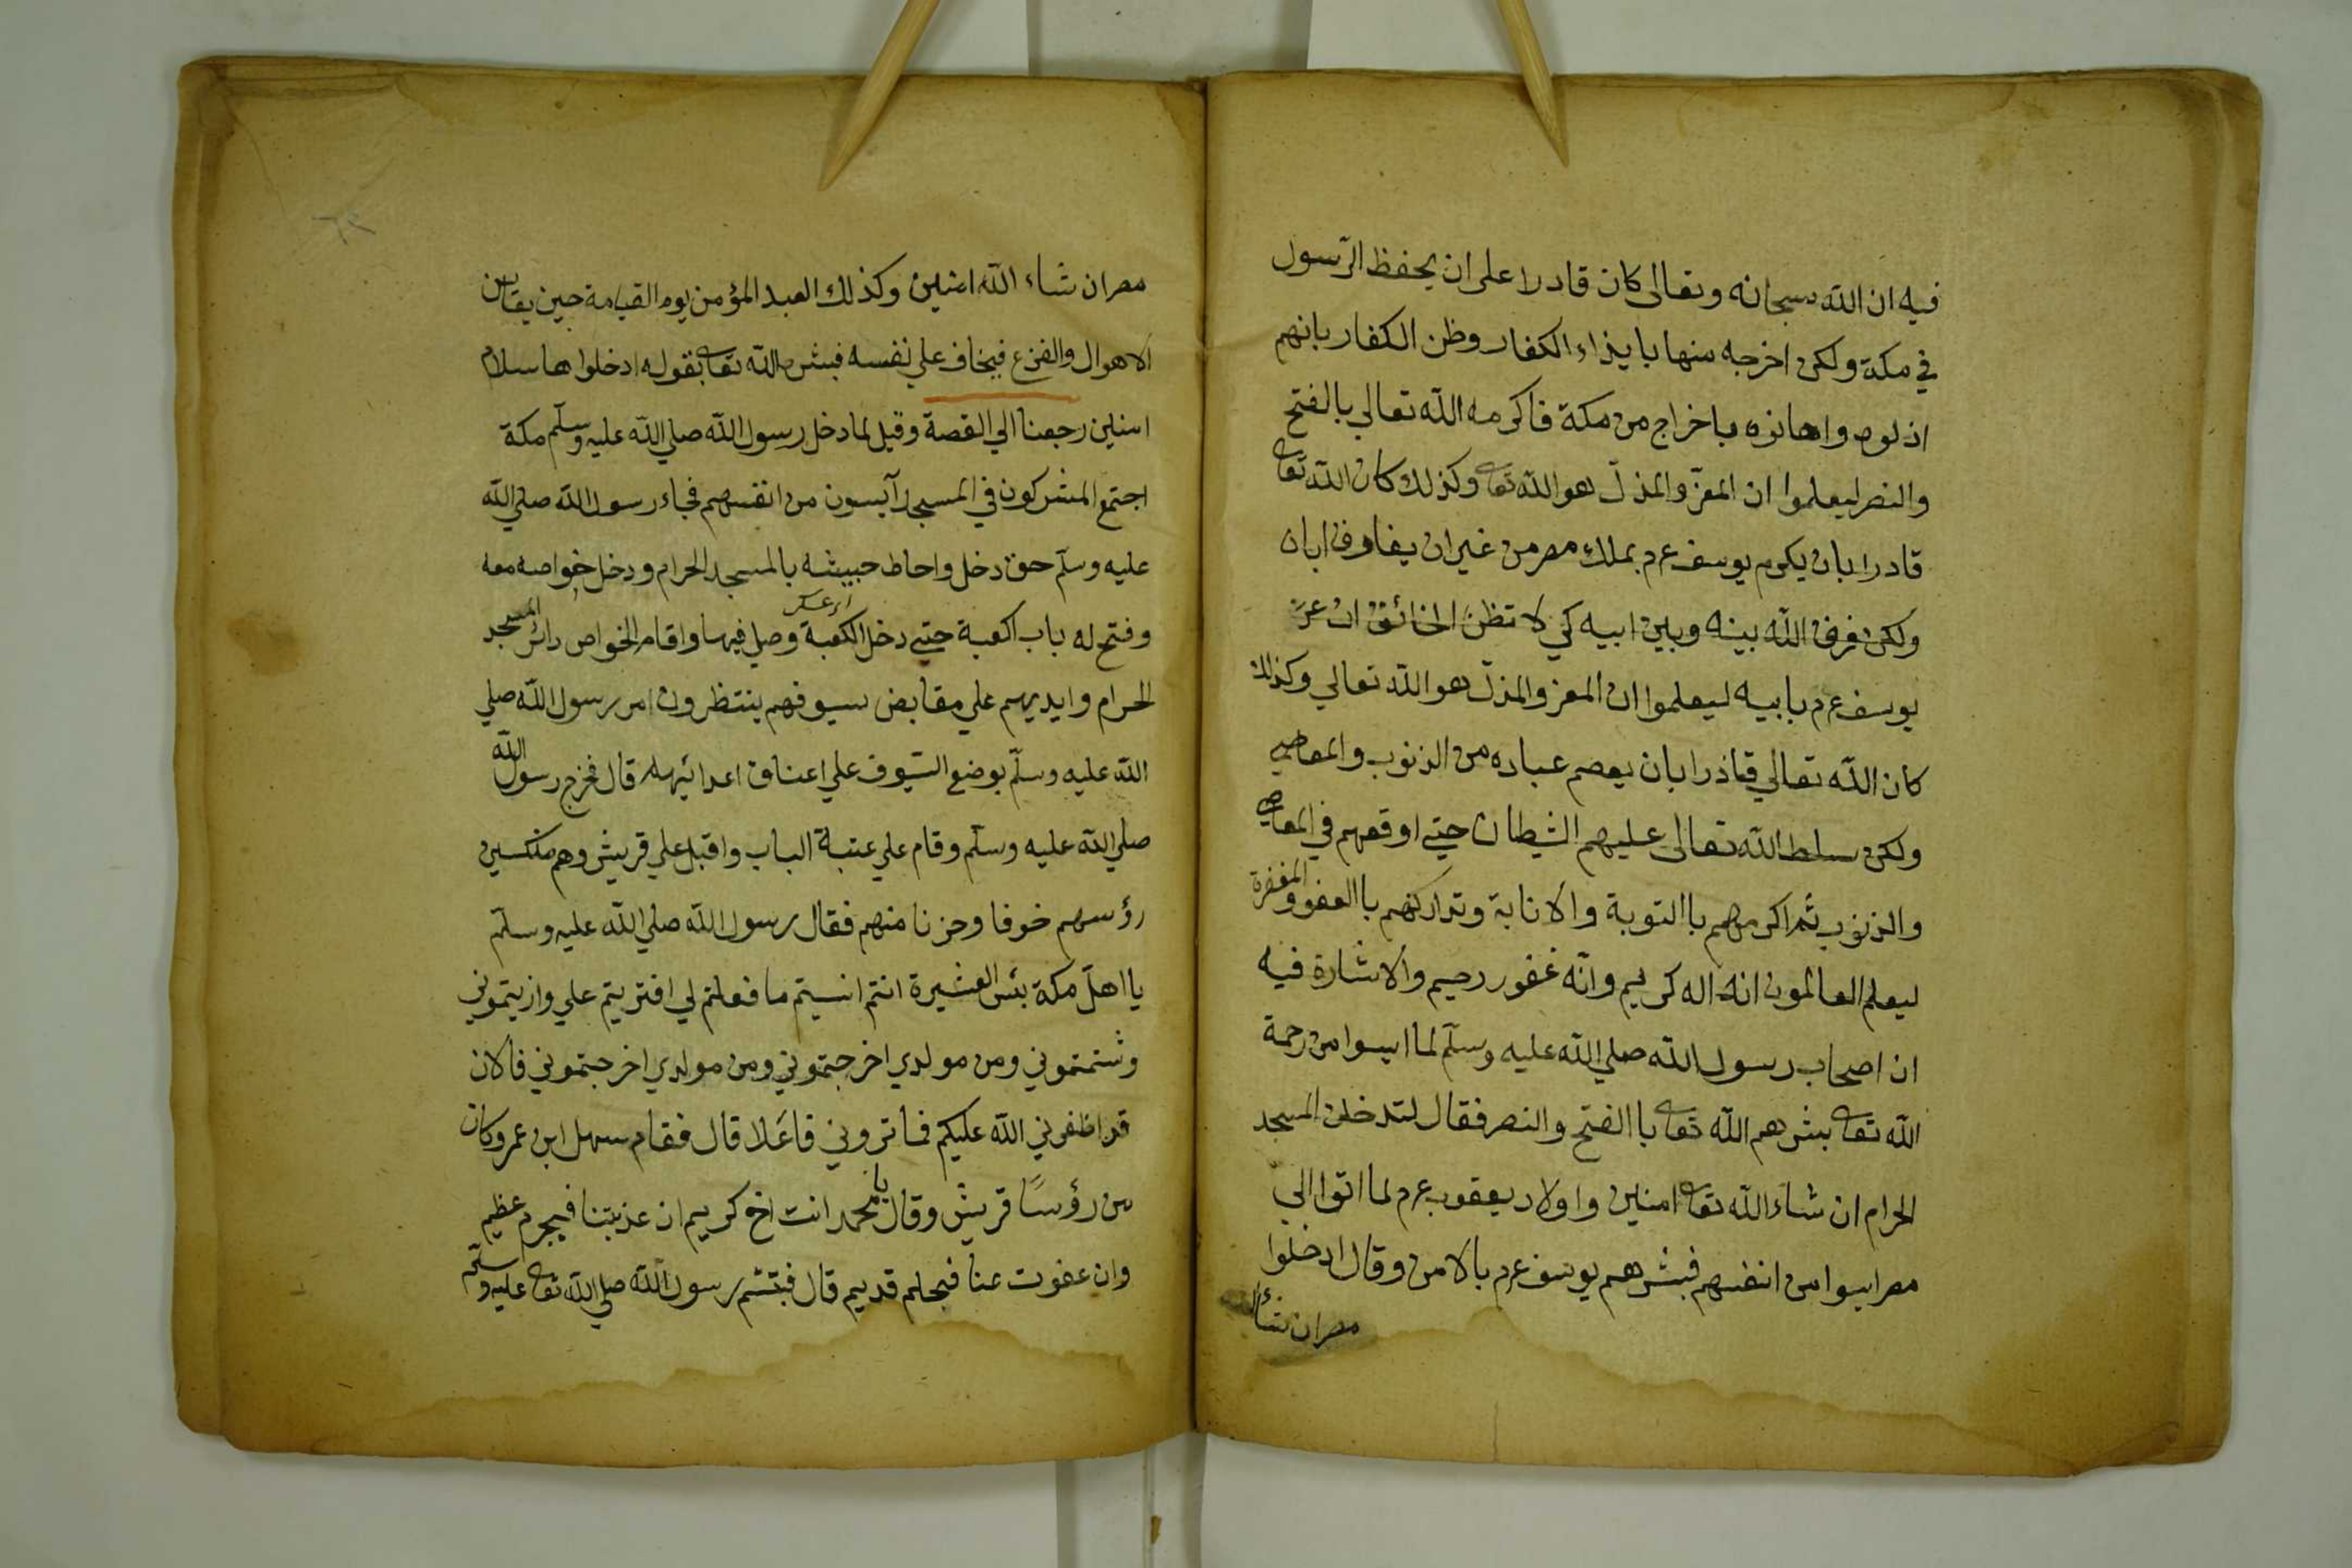 فيه ان الله سبحانه وتعالى كان قادرا على ان يحفظ الرسول
في مكة ولكن اخرجه منها بايذاء الكفار وظن الكفار بانهم
اذلوه واهانوه باخراج من مكة فاكرمه الله تعالي بالفتح
والنصر ليعلموا ان المعز والمذل هو الله تعا وكذلك كان الله تعا
قادرا بان يكرم يوسف عم بملك مصر من غير ان يفارق اباه
ولكن فرق الله بينه وبين ابيه كي لا تظن الخلائق ان عز
يوسف عم بابيه ليعلموا ان المعز والمذل هو الله تعالي وكذلك
كان الله تعالي قادرا بان يعصم عباده من الذنوب والمعاصي
ولكن سلط الله تعالى عليهم الشيطان حتي اوقعهم في المعاصي
والذنوب ثم اكرمهم باالتوبة والانابة وتداركهم باالعفو والمغفرة
ليعلم العالمون انه اله كريم وانه غفور رحيم والاشارة فيه
ان اصحاب رسول الله صلي الله عليه وسلم لما ايسوا من رحمة
الله تعا بشرهم الله تعا باالفتح والنصر فقال لتدخلن المسجد
الحرام ان شاء الله تعا امنين واولاد يعقوب عم لما اتوا الي
مصر ايسوا من انفسهم فبشرهم يوسف عم بالامن وقال ادخلوا
مصر ان شاء
مصر ان شاء الله امنين وكذلك العبد المؤمن يوم القيامة حين يقاس من
الاهوال والفزع فيخاف علي نفسه فبشره الله تعا بقوله ادخلوها سلام
امنين رجعنا الي القصة وقيل لما دخل رسول الله صلي الله عليه وسلم مكة
اجتمع المشركون في المسجد آيسون من انفسهم فجاء رسول الله صلي الله
عليه وسلم حتى دخل واحاط جيشه بالمسجد الحرام ودخل خواصه معه
اي عسكر
وفتح له باب اكعبة حتي دخل الكعبة وصلي فيها واقام الخواص دائر المسجد
الحرام وايديهم علي مقابض سيوفهم ينتظرون امر رسول الله صلي
الله عليه وسلم بوضع السيوف علي اعناق اعدائهم قال فخرج رسول الله
صلي الله عليه وسلم وقام علي عتبة الباب واقبل علي قريش وهم منكسين
رؤسهم خوفا وحزنا منهم فقال رسول الله صلي الله عليه وسلم
يا اهل مكة بئس العشيرة انتم انسيتم ما فعلتم لي افتريتم علي واذيتموني
وشتمتموني ومن مولدي اخرجتموني ومن مولدي اخرجتموني فالان
قد اظفرني الله عليكم فما تروني فاعلا قال فقام سهل ابن عمر وكان
من رؤسا قريش وقال يا محمد انت اخ كريم ان عذبتنا فبجرم عظيم
وان عفوت عنا فبحلم قديم قال فتبسم رسول الله صلي الله تعا عليه وسلم